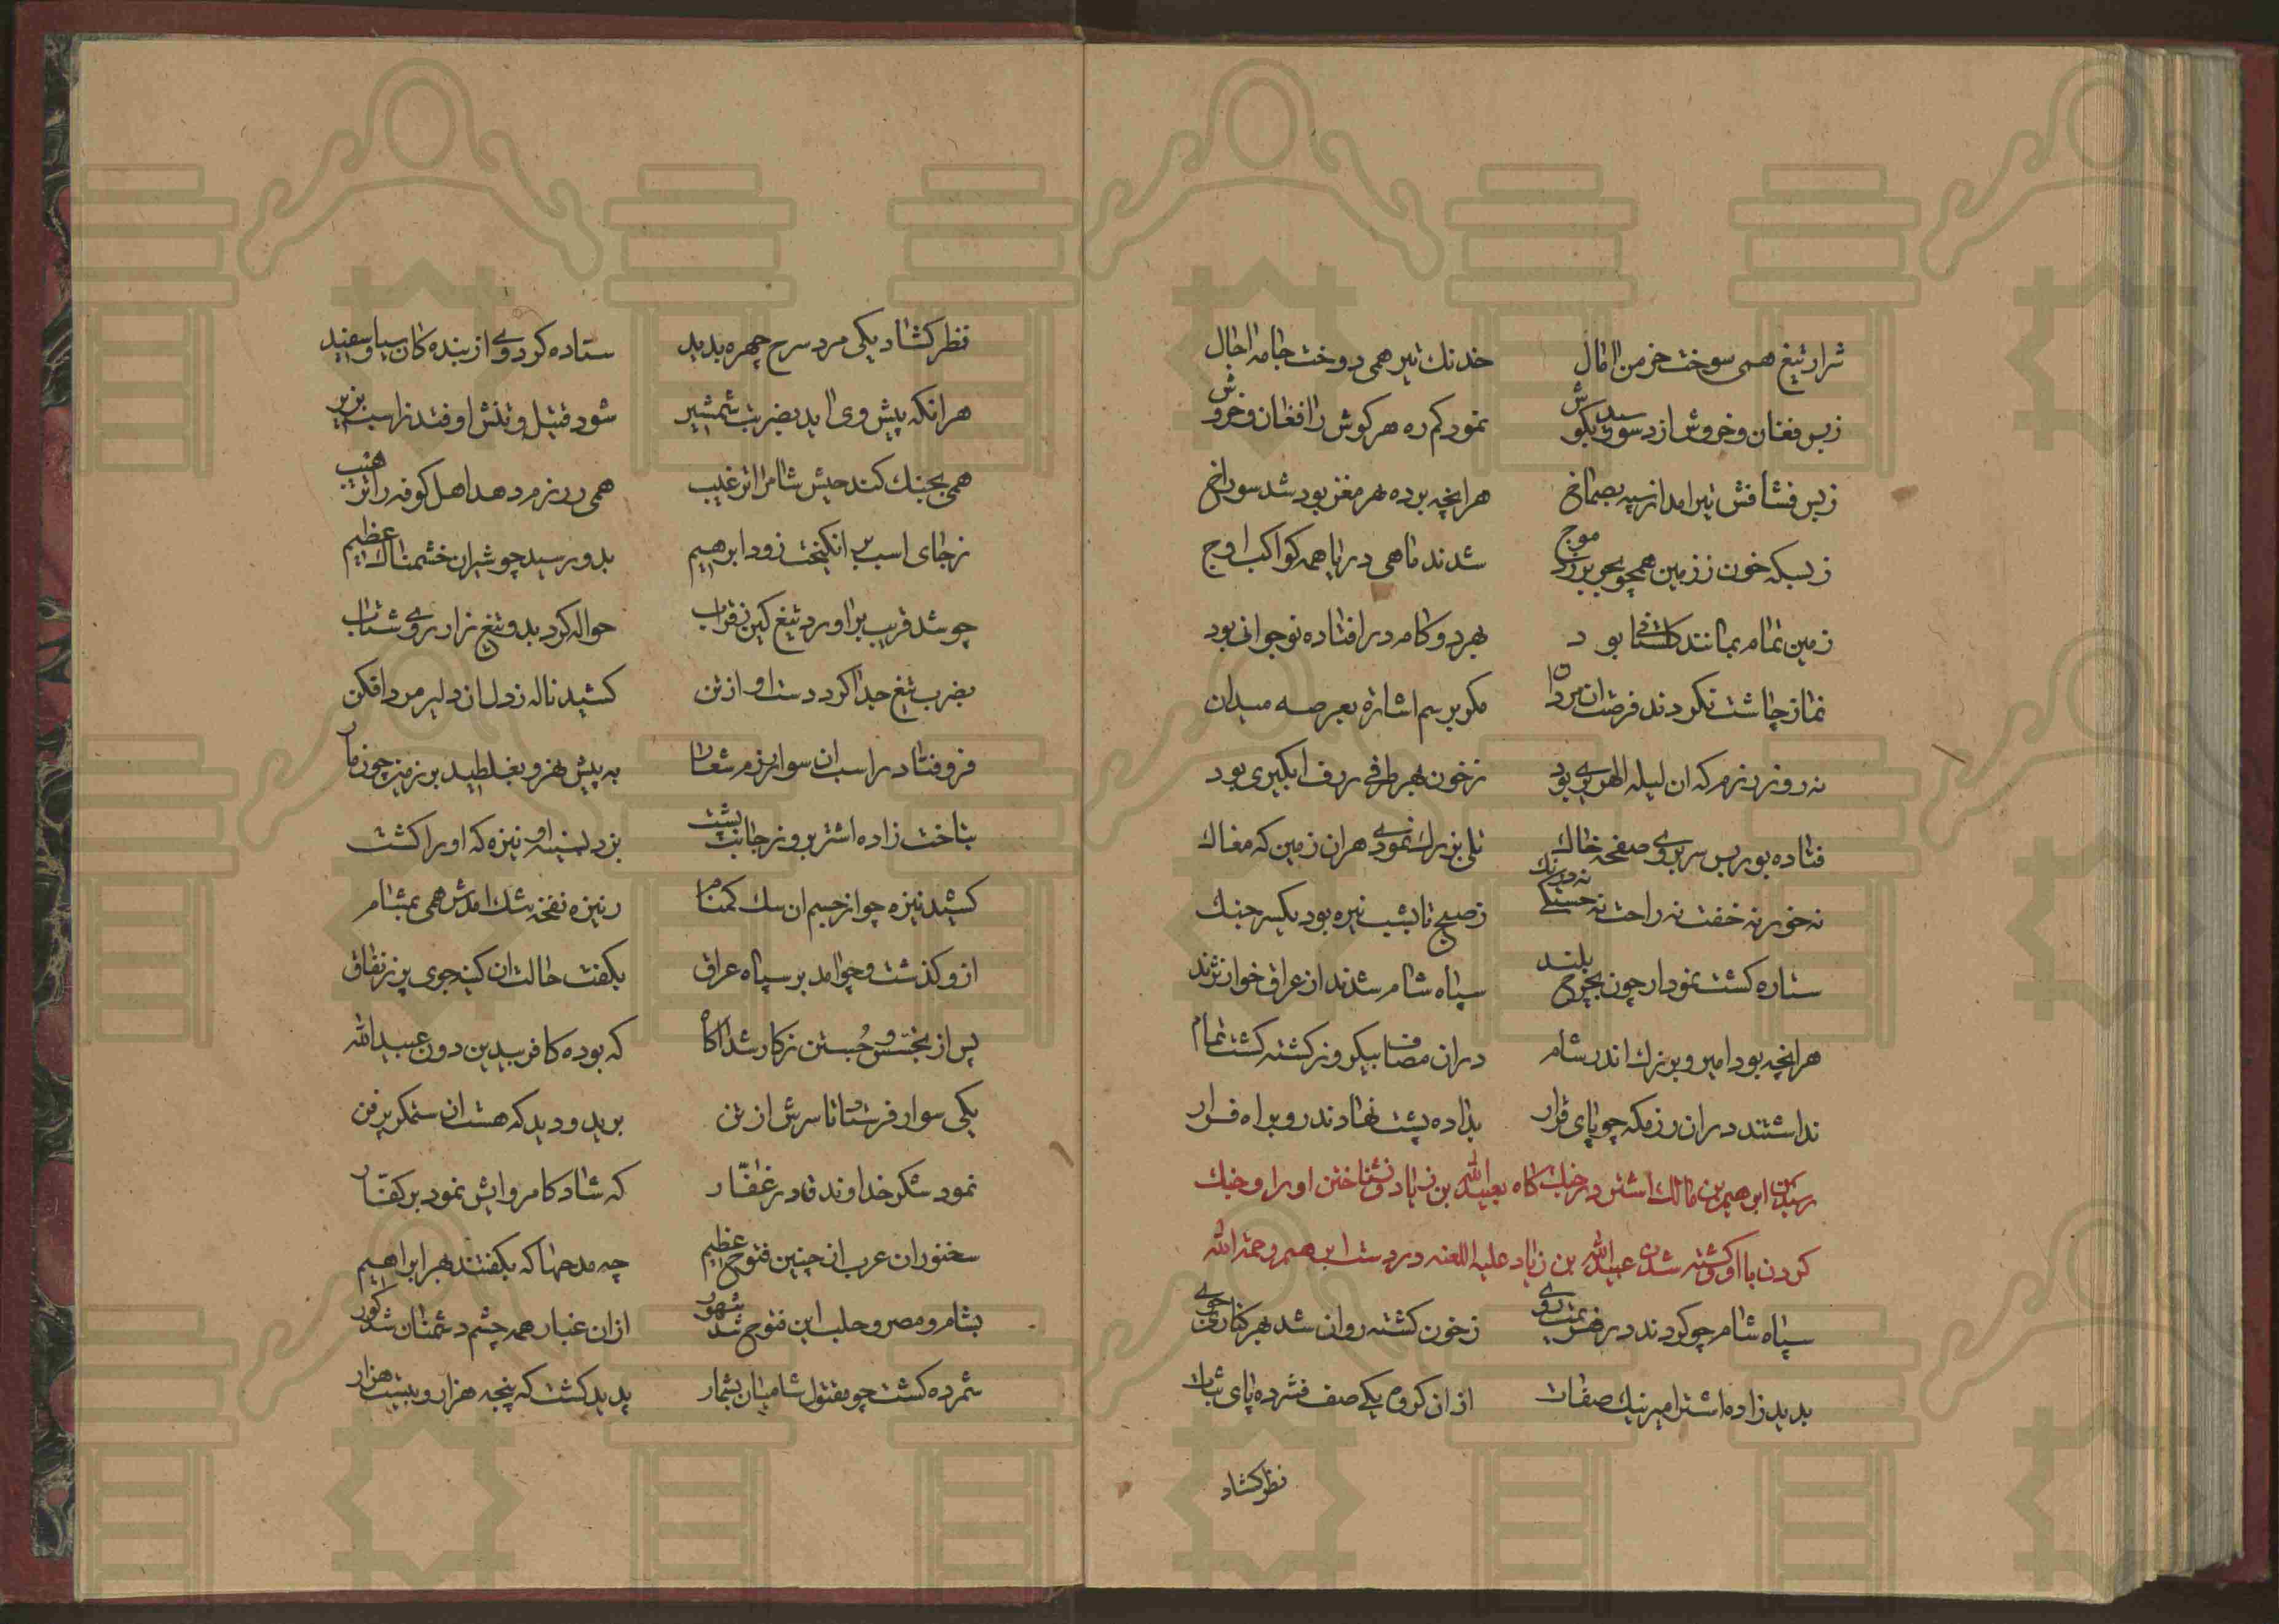 شرار تیغ همی سوخت خرمن امال خدنك تیر همی دوخت جامه اجال
زبس فغان و خروش از دو سو رسید بکوش نمود کم ره هر کوش را فغان و خروش
زبس فشافش تیر امد از سپه بصماخ هرانچه برده هر مغز بود شد سوراخ
زبسکه خون ز زمین همچو بحر بر زد موج شدند ماهی دریا همه کواکب اوج
زمین تمام بمانند کلستانی بود بهر دو کام در افتاده نوجوانی بود
نماز چاشت نکردند فرصت ان مردان مکر برسم اشاره بعرصه میدان
نه روز رزم که ان لیله الهریری بود زخون بهر طرفی ژرف ابکیری بود
فتاده بود بس سر بروی صفحه خاك تلی بزرك نمودی هران زمین که مغاك
نه خور نه خفت نه راحت نه خستکی نه درنك زصبح تا بشب تیره بود یکسر جنك
ستاره کشت نمودار چون بچرخ بلند سپاه شام شدند از عراق خوار نژند
هرانچه بود امیر و بزرك اندر شام دران مصاف بیکروز کشته کشت تمام
نداشتند دران رزمکه چو پای قرار بداده پشت نهادند رو براه فرار
رسیدن ابرهیم بن مالك اشتر در جنك کاه بعبیدالله بن زیاد و نشناختن او را و جنك
کردن با او و کشته شدن عبیدالله بن زیاد علیه اللعنه در دست ابرهیم رحمة الله
سپاه شام چو کردند در هزیمت روی زخون کشته روان شد بهر کنار جوی
بدید زاده اشتر امیر نیك صفات ازان کروه یکی صف فشرده پای ثبات
نظر کشاد
نظر کشاد یکی مرد سرخ چهره بدید ستاده کرد وی از بنده کان سیا و سفید
هرانکه پیش وی اید بضربت شمشیر شود قتیل و تنش اوفتد زاسب بزیر
همی بجنك کند جیش شام را ترغیب همی ز رزم دهد اهل کوفه را ترهیب
زجای اسب بر انکیخت زود ابرهیم بدو رسید چو شیران خشمناك عظیم
چو شد قریب براورد تیغ کین زقراب حواله کرد بدو تیغ از روی شتاب
بضرب تیغ جدا کرد دست او از تن کشید ناله زدل ان دلیر مرد افکن
فرو فتاد زاسب ان سوار رزم شعار به پیش نهر و بغلطید بر زمین چون مار
بتاخت زاده اشتر برو زجانب پشت بزد بسینه او نیزه که او را کشت
کشید نیزه چو از جسم ان سك کمنام زنیزه نفخه مشك امدش همی بمشام
ازو کذشت و چو امد بر سپاه عراق بکفت حالت ان کینه جوی پر زنفاق
پس از تجسس و جستن زکار شد اکاه که بوده کافر بیدین دون عبیدالله
یکی سوار فرستاد تا سرش از تن برید و دید که هست ان ستمکر پرفن
نمود شکر خداوند قادر غفار که شاد کام روایش نمود بر کفار
سخنوران عرب از چنین فتوح عظیم چه مدحها که بکفتند بهر ابراهیم
بشام و مصر و حلب این فتوح شد مشهور ازان غبار همه چشم دشمنان شد کور
شمرده کشت چو مقتول شامیان بشمار پدید کشت که پنجه هزار و بیست هزار